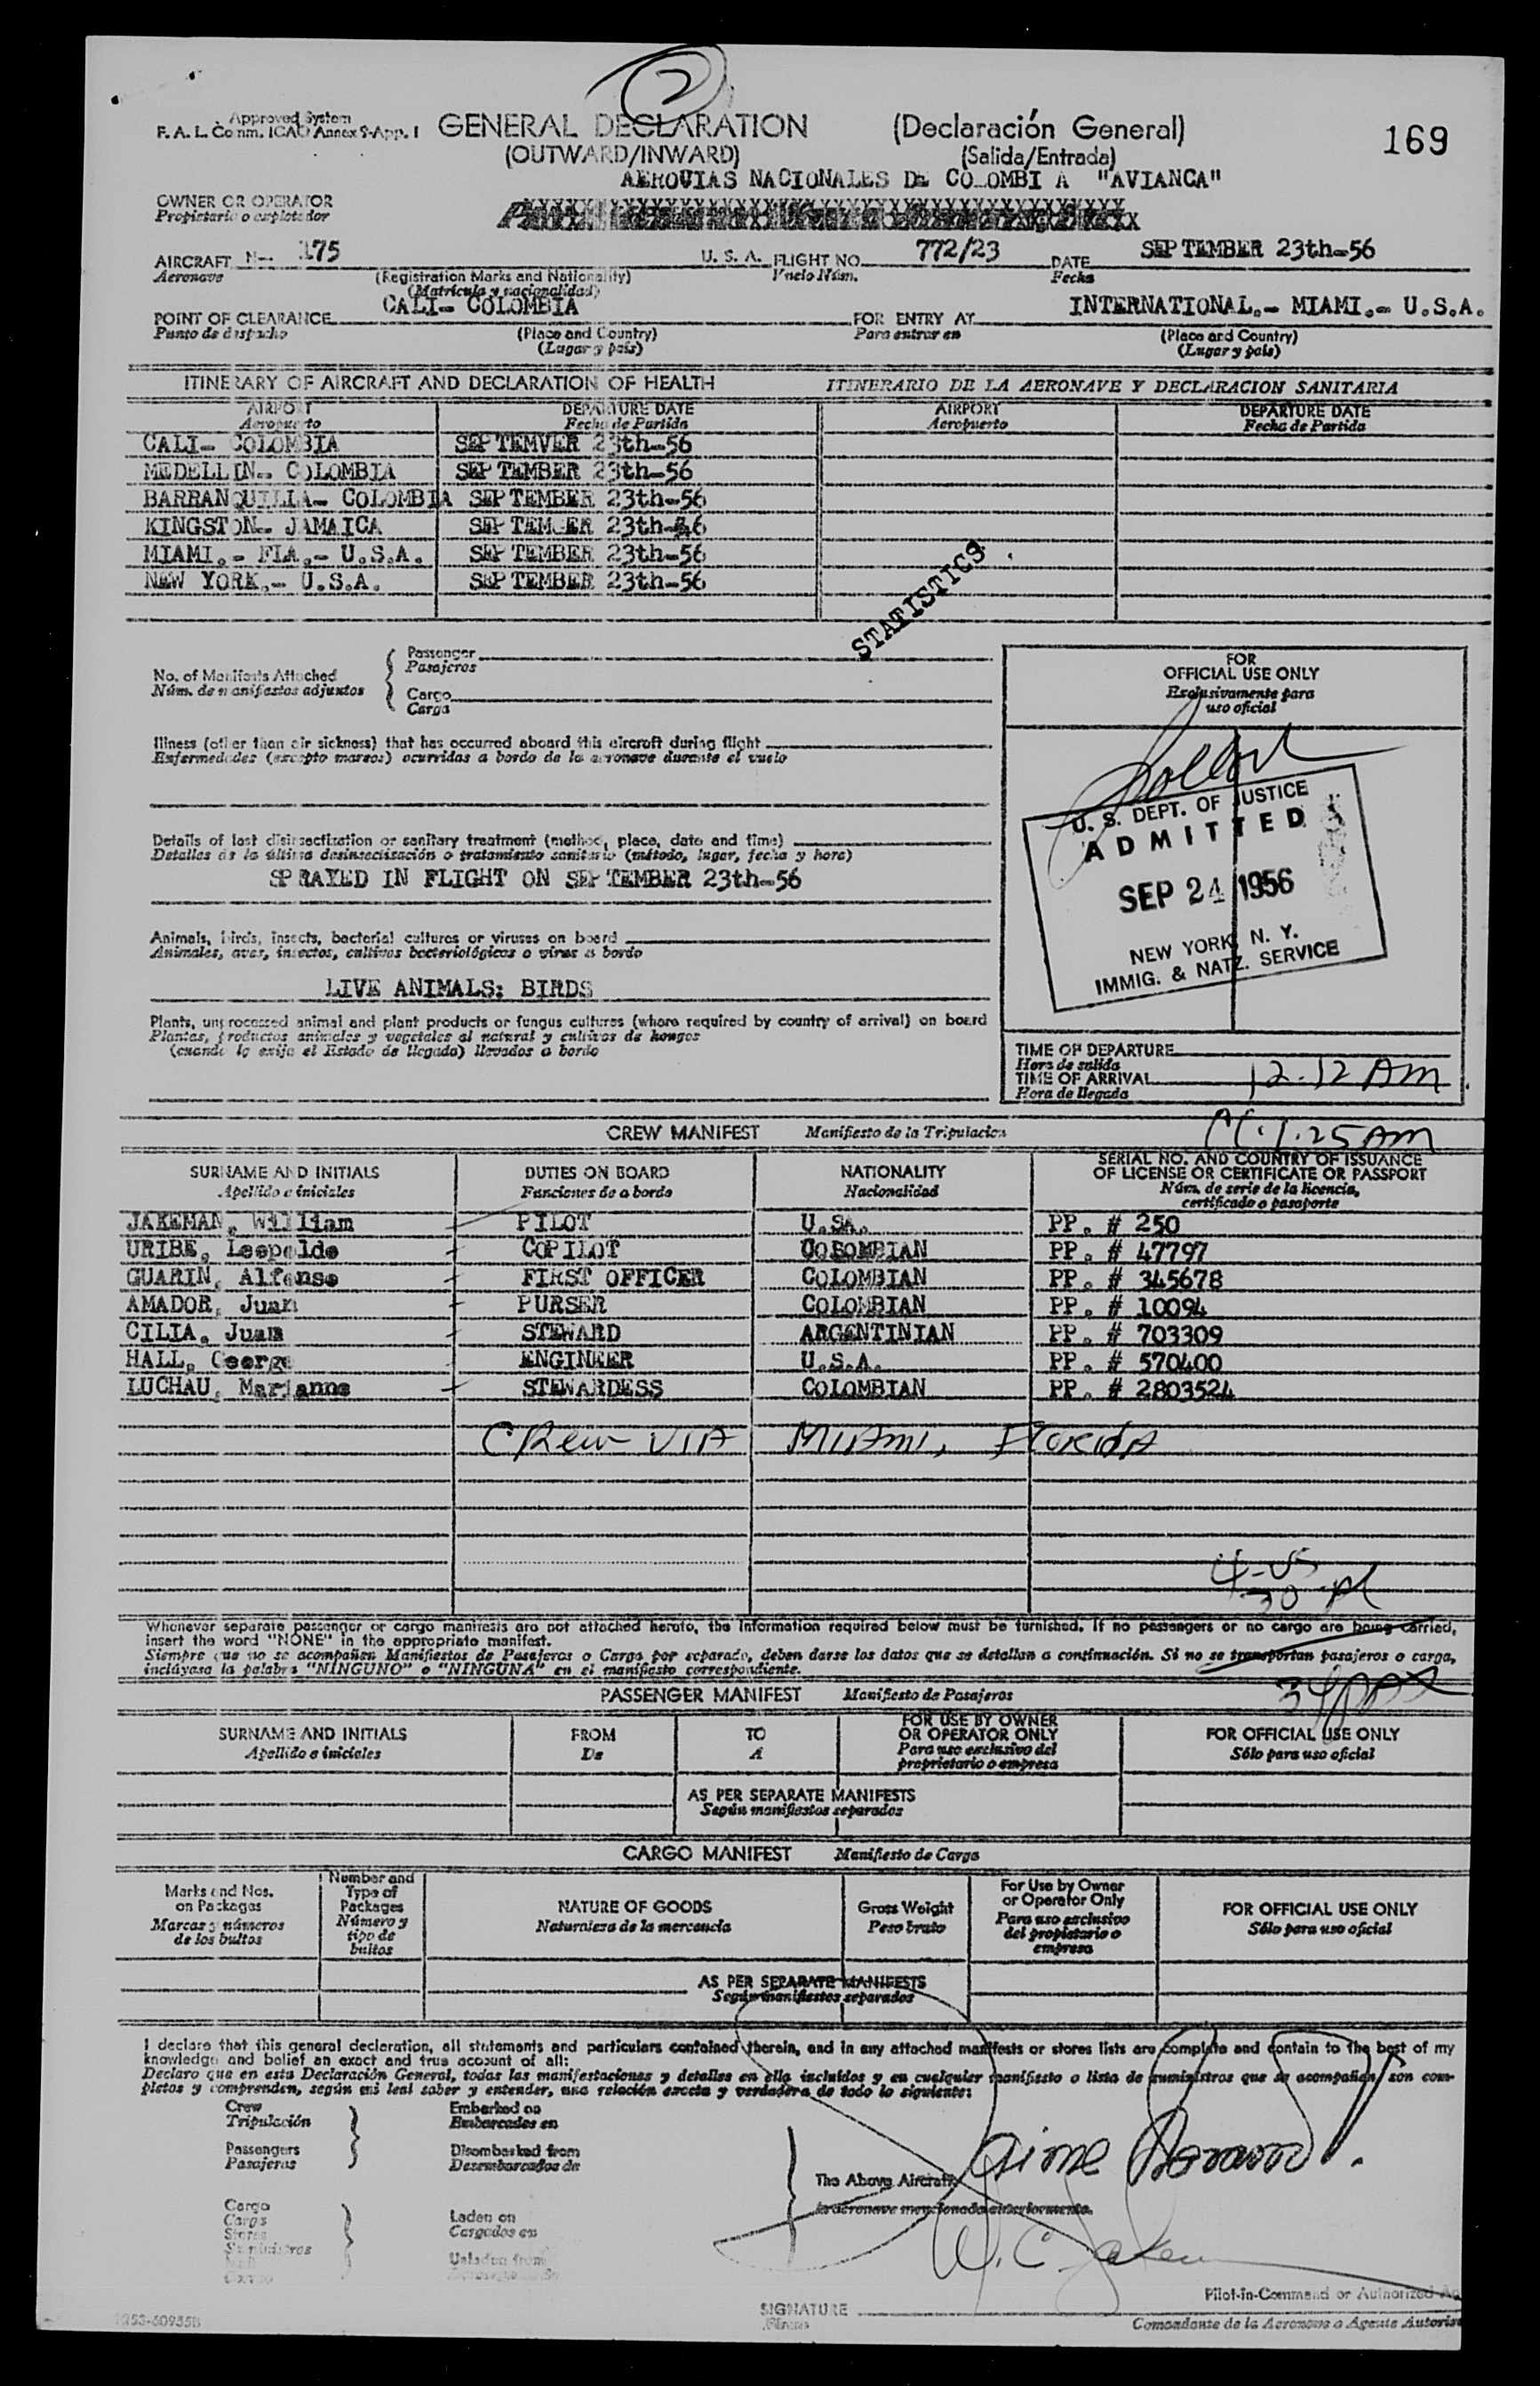 2
Approved System
F. A. L. Comm. ICAO Annex 9-App. I
GENERAL DECLARATION (Declaración General)
(OUTWARD/INWARD) (Salida/Entrada)
169
AEROVIAS NACIONALES DE COLOMBI A "AVIANCA"
OWNER OR OPERATOR
Propietario o explotador
AIRCRAFT N- 175 U. S. A. FLIGHT NO. 772/23 DATE SEPTEMBER 23th-56
Aeronave (Registration Marks and Nationality) Vuelo Núm. Fecha
(Matrícula y nacionalidad)
POINT OF CLEARANCE CALI- COLOMBIA FOR ENTRY AT INTERNATIONAL.- MIAMI.- U.S.A.
Punto de despacho (Place and Country) Para entrar en (Place and Country)
(Lugar y país) (Lugar y país)
ITINERARY OF AIRCRAFT AND DECLARATION OF HEALTH ITINERARIO DE LA AERONAVE Y DECLARACION SANITARIA
AIRPORT DEPARTURE DATE AIRPORT DEPARTURE DATE
Aeropuerto Fecha de Partida Aeropuerto Fecha de Partida
CALI- COLOMBIA SEPTEMVER 23th-56
MEDELLIN- COLOMBIA SEPTEMBER 23th-56
BARRANQUILLA- COLOMBIA SEPTEMBER 23th-56
KINGSTON- JAMAICA 23th-56
MIAMI.- FLA.- U.S.A. SEPTEMBER 23th-56
NEW YORK.- U.S.A. SEPTEMBER 23th-56
STATISTICS
No. of Manifests Attached
Núm. de manifiestos adjuntos
Passenger
Pasajeros
Cargo
Carga
FOR
OFFICIAL USE ONLY
Exclusivamente para
uso oficial
Illness (other than air sickness) that has occurred aboard this aircraft during flight
Enfermedades (excepto mareos) ocurridas a bordo de la aeronave durante el vuelo
Details of last disinsectization or sanitary treatment (method, place, date and time)
Detalles de la última desinsectización o tratamiento sanitario (método, lugar, fecha y hora)
SPRAYED IN FLIGHT ON SEPTEMBER 23th-56
U. S. DEPT. OF JUSTICE
ADMITTED
SEP 24 1956
NEW YORK, N. Y.
IMMIG. & NATZ. SERVICE
Animals, birds, insects, bacterial cultures or viruses on board
Animales, aves, insectos, cultivos bacteriológicos o virus a bordo
LIVE ANIMALS: BIRDS
Plants, unprocessed animal and plant products or fungus cultures (where required by country of arrival) on board
Plantas, productos animales y vegetales al natural y cultivos de hongos
(cuando lo exija el Estado de llegada) llevados a bordo
TIME OF DEPARTURE
Hora de salida
TIME OF ARRIVAL 12.12 AM
Hora de llegada
1.25 AM
CREW MANIFEST Manifiesto de la Tripulacion
SURNAME AND INITIALS DUTIES ON BOARD NATIONALITY SERIAL NO. AND COUNTRY OF ISSUANCE
OF LICENSE OR CERTIFICATE OR PASSPORT
Apellido e iniciales Funciones de a bordo Nacionalidad Núm. de serie de la licencia,
certificado o pasaporte
JAKEMAN, William PILOT U.SA. PP. # 250
URIBE, Leopoldo COPILOT COLOMBIAN PP. # 47797
GUARIN, Alfonso FIRST OFFICER COLOMBIAN PP. # 345678
AMADOR, Juan PURSER COLOMBIAN PP. # 10094
CILIA, Juan STEWARD ARGENTINIAN PP. # 703309
HALL, George ENGINEER U.S.A. PP. # 570400
LUCHAU, Marianne STEWARDESS COLOMBIAN PP. # 2803524
CREW VIA MIAMI, FLORIDA
4-US
30
Whenever separate passenger or cargo manifests are not attached hereto, the information required below must be furnished. If no passengers or no cargo are being carried,
insert the word "NONE" in the appropriate manifest.
Siempre que no se acompañen Manifiestos de Pasajeros o Carga por separado, deben darse los datos que se detallan a continuación. Si no se transportan pasajeros o carga,
inclúyase la palabra "NINGUNO" o "NINGUNA" en el manifiesto correspondiente.
PASSENGER MANIFEST Manifiesto de Pasajeros
SURNAME AND INITIALS FROM TO FOR USE BY OWNER
OR OPERATOR ONLY FOR OFFICIAL USE ONLY
Apellido e iniciales De A Para uso exclusivo del
proprietario o empresa Sólo para uso oficial
AS PER SEPARATE MANIFESTS
Según manifiestos separados
CARGO MANIFEST Manifiesto de Carga
Marks and Nos.
on Packages
Marcas y números
de los bultos
Number and
Type of
Packages
Número y
tipo de
bultos
NATURE OF GOODS
Naturaleza de la mercancía
Gross Weight
Peso bruto
For Use by Owner
or Operator Only
Para uso exclusivo
del propietario o
empresa
FOR OFFICIAL USE ONLY
Sólo para uso oficial
AS PER SEPARATE MANIFESTS
Según manifiestos separados
I declare that this general declaration, all statements and particulars contained therein, and in any attached manifests or stores lists are complete and contain to the best of my
knowledge and belief an exact and true account of all:
Declaro que en esta Declaración General, todas las manifestaciones y detalles en ella incluidos y en cualquier manifiesto o lista de suministros que se acompañen, son com-
pletos y comprenden, según mi leal saber y entender, una relación exacta y verdadera de todo lo siguiente:
Crew
Tripulación
Passengers
Pasajeros
Embarked on
Embarcados en
Disembarked from
Desembarcados de
Cargo
Carga
Stores
Suministros
Laden on
Cargados en
Unladen from
The Above Aircraft
la aeronave mencionada anteriormente.
W. C. Jakeman
Pilot-in-Command or Authorized
SIGNATURE
Firma
Comandante de la Aeronave o Agente